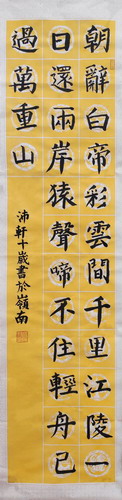 朝辭白帝彩雲間千里江陵一
日還兩岸猿聲啼不住輕舟已
過萬重山
沛軒十歲書於嶺南